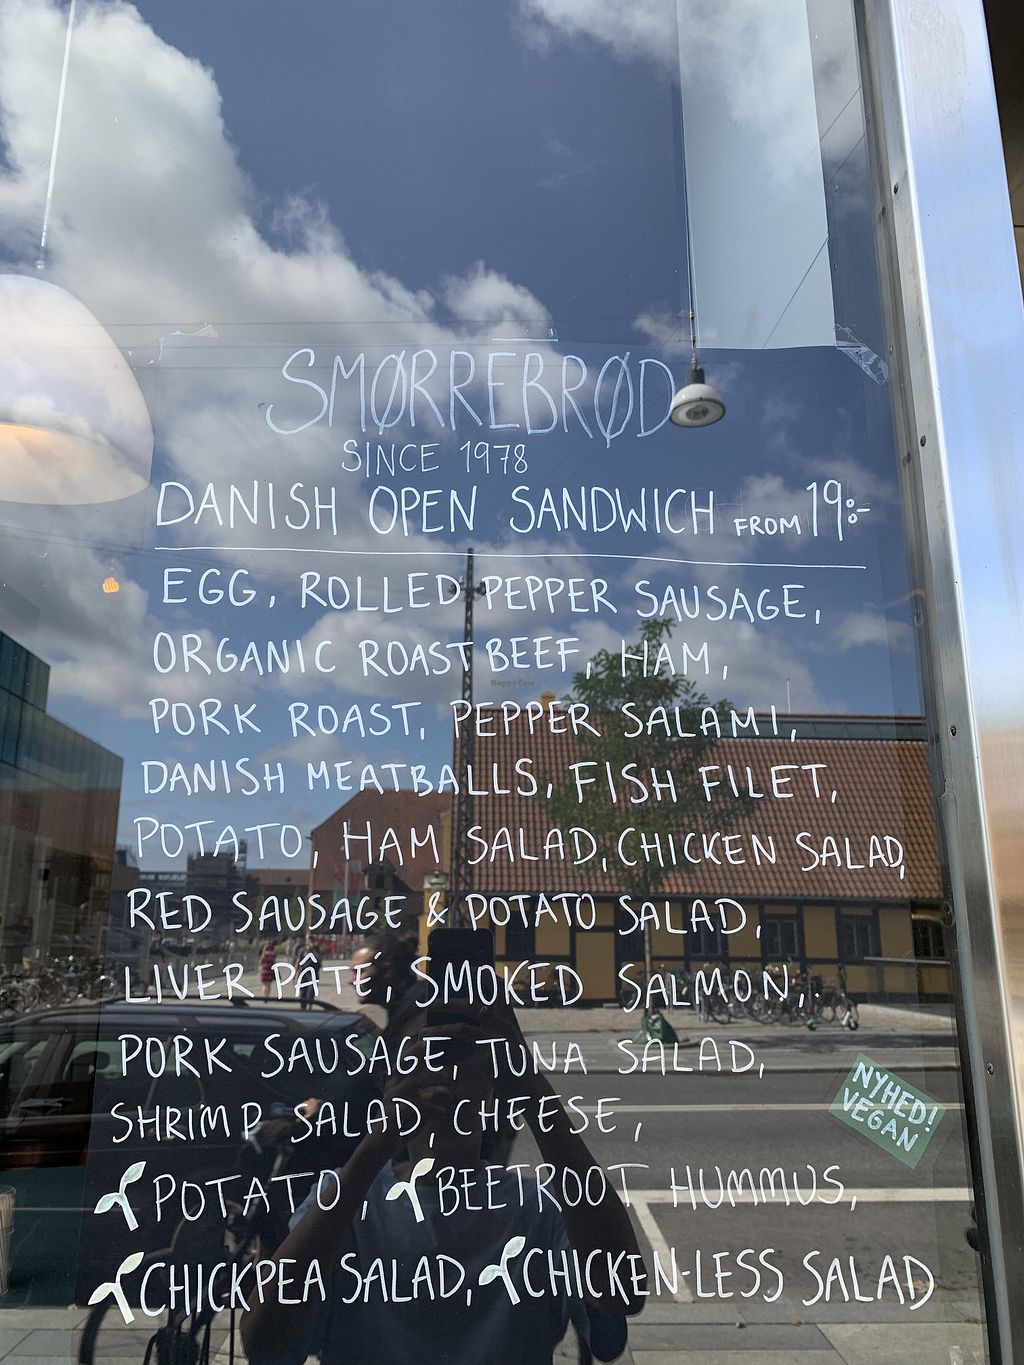 SMØRREBRØD
SINCE 1978
DANISH OPEN SANDWICH FROM 19:-
EGG, ROLLED PEPPER SAUSAGE,
ORGANIC ROAST BEEF, HAM,
PORK ROAST, PEPPER SALAMI,
DANISH MEATBALLS, FISH FILET,
POTATO, HAM SALAD, CHICKEN SALAD,
RED SAUSAGE & POTATO SALAD,
LIVER PÂTÉ, SMOKED SALMON,
PORK SAUSAGE, TUNA SALAD,
SHRIMP SALAD, CHEESE,
POTATO, BEETROOT HUMMUS,
CHICKPEA SALAD, CHICKEN-LESS SALAD
NYHED!
VEGAN
HappyCow